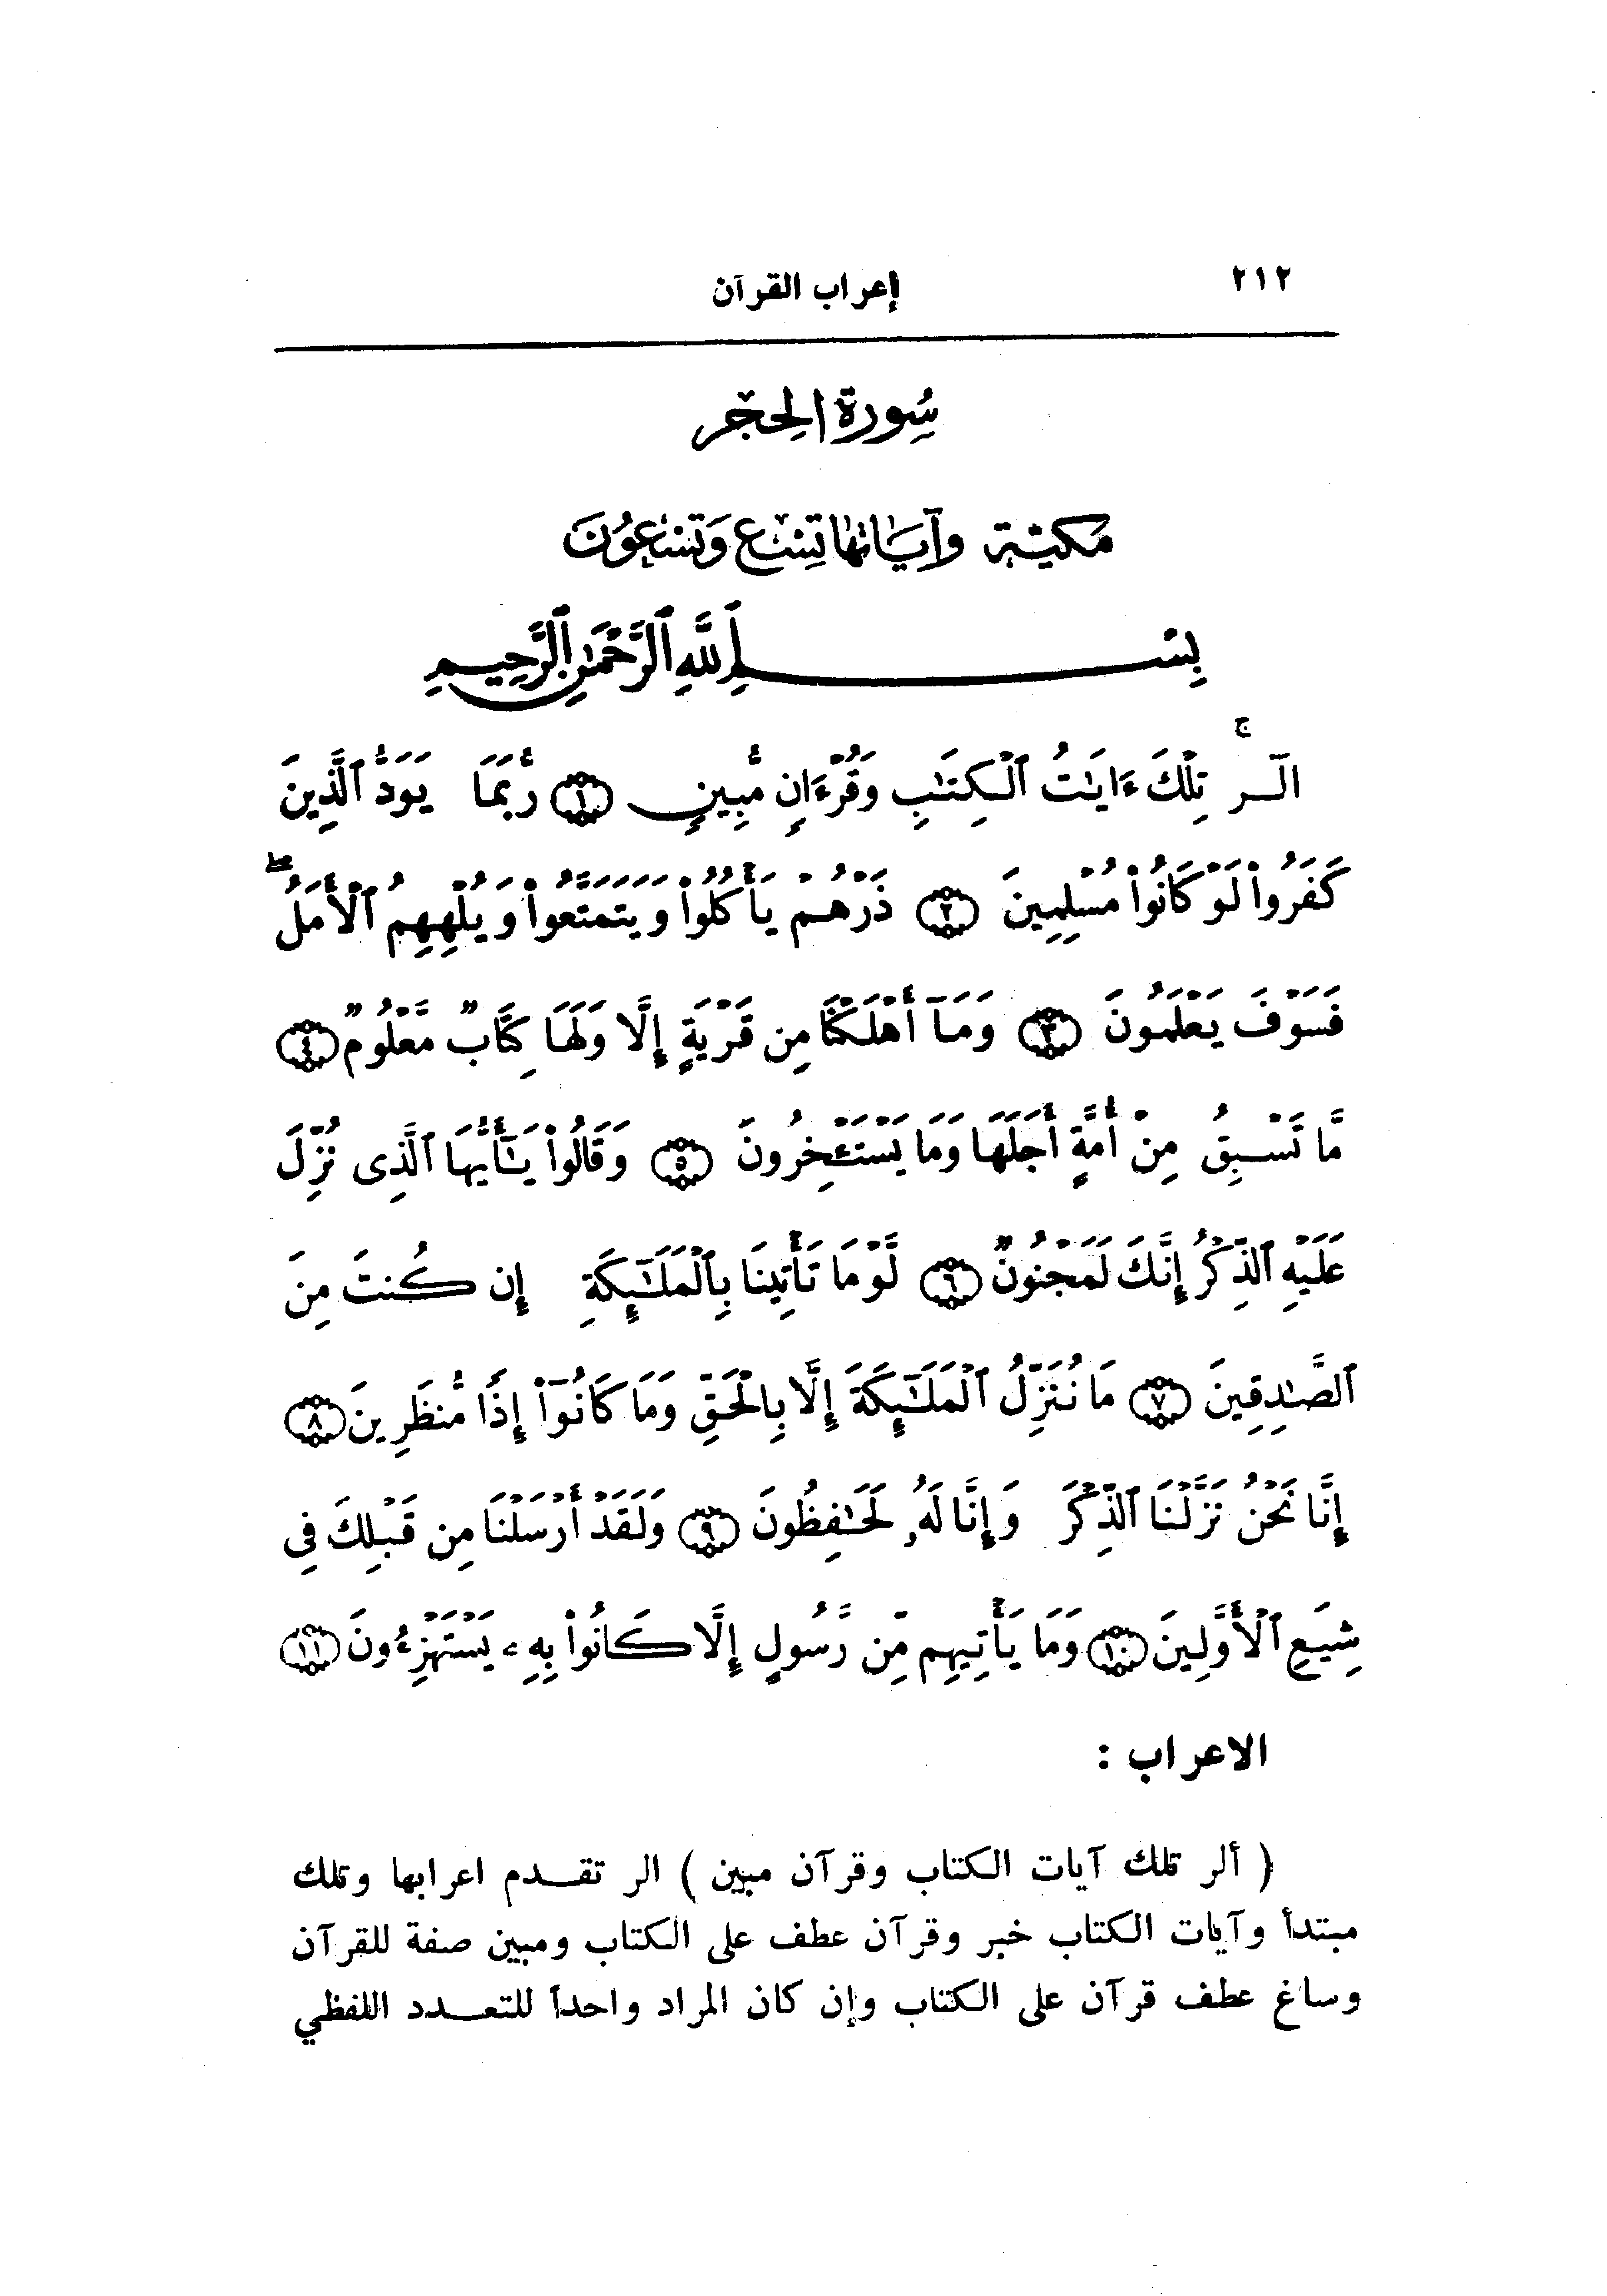 ٢١٢
إعراب القرآن
سُورة الحِجْر
مَكيّة وآيَاتها تِسْع وَتسْعُونَ
بِسْمِ ٱللَّهِ ٱلرَّحْمَٰنِ ٱلرَّحِيمِ
الٓر ۚ تِلْكَ ءَايَٰتُ ٱلْكِتَٰبِ وَقُرْءَانٍ مُّبِينٍ ١ رُّبَمَا يَوَدُّ ٱلَّذِينَ
كَفَرُوا۟ لَوْ كَانُوا۟ مُسْلِمِينَ ٢ ذَرْهُمْ يَأْكُلُوا۟ وَيَتَمَتَّعُوا۟ وَيُلْهِهِمُ ٱلْأَمَلُ ۖ
فَسَوْفَ يَعْلَمُونَ ٣ وَمَآ أَهْلَكْنَا مِن قَرْيَةٍ إِلَّا وَلَهَا كِتَابٌ مَّعْلُومٌ ٤
مَّا تَسْبِقُ مِنْ أُمَّةٍ أَجَلَهَا وَمَا يَسْتَـْٔخِرُونَ ٥ وَقَالُوا۟ يَٰٓأَيُّهَا ٱلَّذِى نُزِّلَ
عَلَيْهِ ٱلذِّكْرُ إِنَّكَ لَمَجْنُونٌ ٦ لَّوْ مَا تَأْتِينَا بِٱلْمَلَٰٓئِكَةِ إِن كُنتَ مِنَ
ٱلصَّٰدِقِينَ ٧ مَا نُنَزِّلُ ٱلْمَلَٰٓئِكَةَ إِلَّا بِٱلْحَقِّ وَمَا كَانُوٓا۟ إِذًا مُّنظَرِينَ ٨
إِنَّا نَحْنُ نَزَّلْنَا ٱلذِّكْرَ وَإِنَّا لَهُۥ لَحَٰفِظُونَ ٩ وَلَقَدْ أَرْسَلْنَا مِن قَبْلِكَ فِى
شِيَعِ ٱلْأَوَّلِينَ ١٠ وَمَا يَأْتِيهِم مِّن رَّسُولٍ إِلَّا كَانُوا۟ بِهِۦ يَسْتَهْزِءُونَ ١١
الاعراب :
( ألر تلك آيات الكتاب وقرآن مبين ) الر تقـدم اعرابها وتلك
مبتدأ وآيات الكتاب خبر وقرآن عطف على الكتاب ومبين صفة للقرآن
وساغ عطف قرآن على الكتاب وإن كان المراد واحداً للتعـدد اللفظي